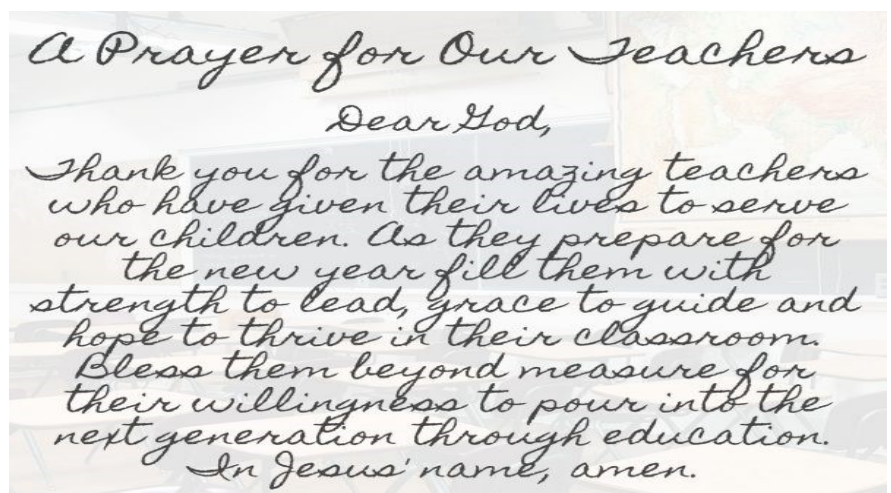 A Prayer for Our Teachers
Dear God,
Thank you for the amazing teachers
who have given their lives to serve
our children. As they prepare for
the new year fill them with
strength to lead, grace to guide and
hope to thrive in their classroom.
Bless them beyond measure for
their willingness to pour into the
next generation through education.
In Jesus' name, amen.